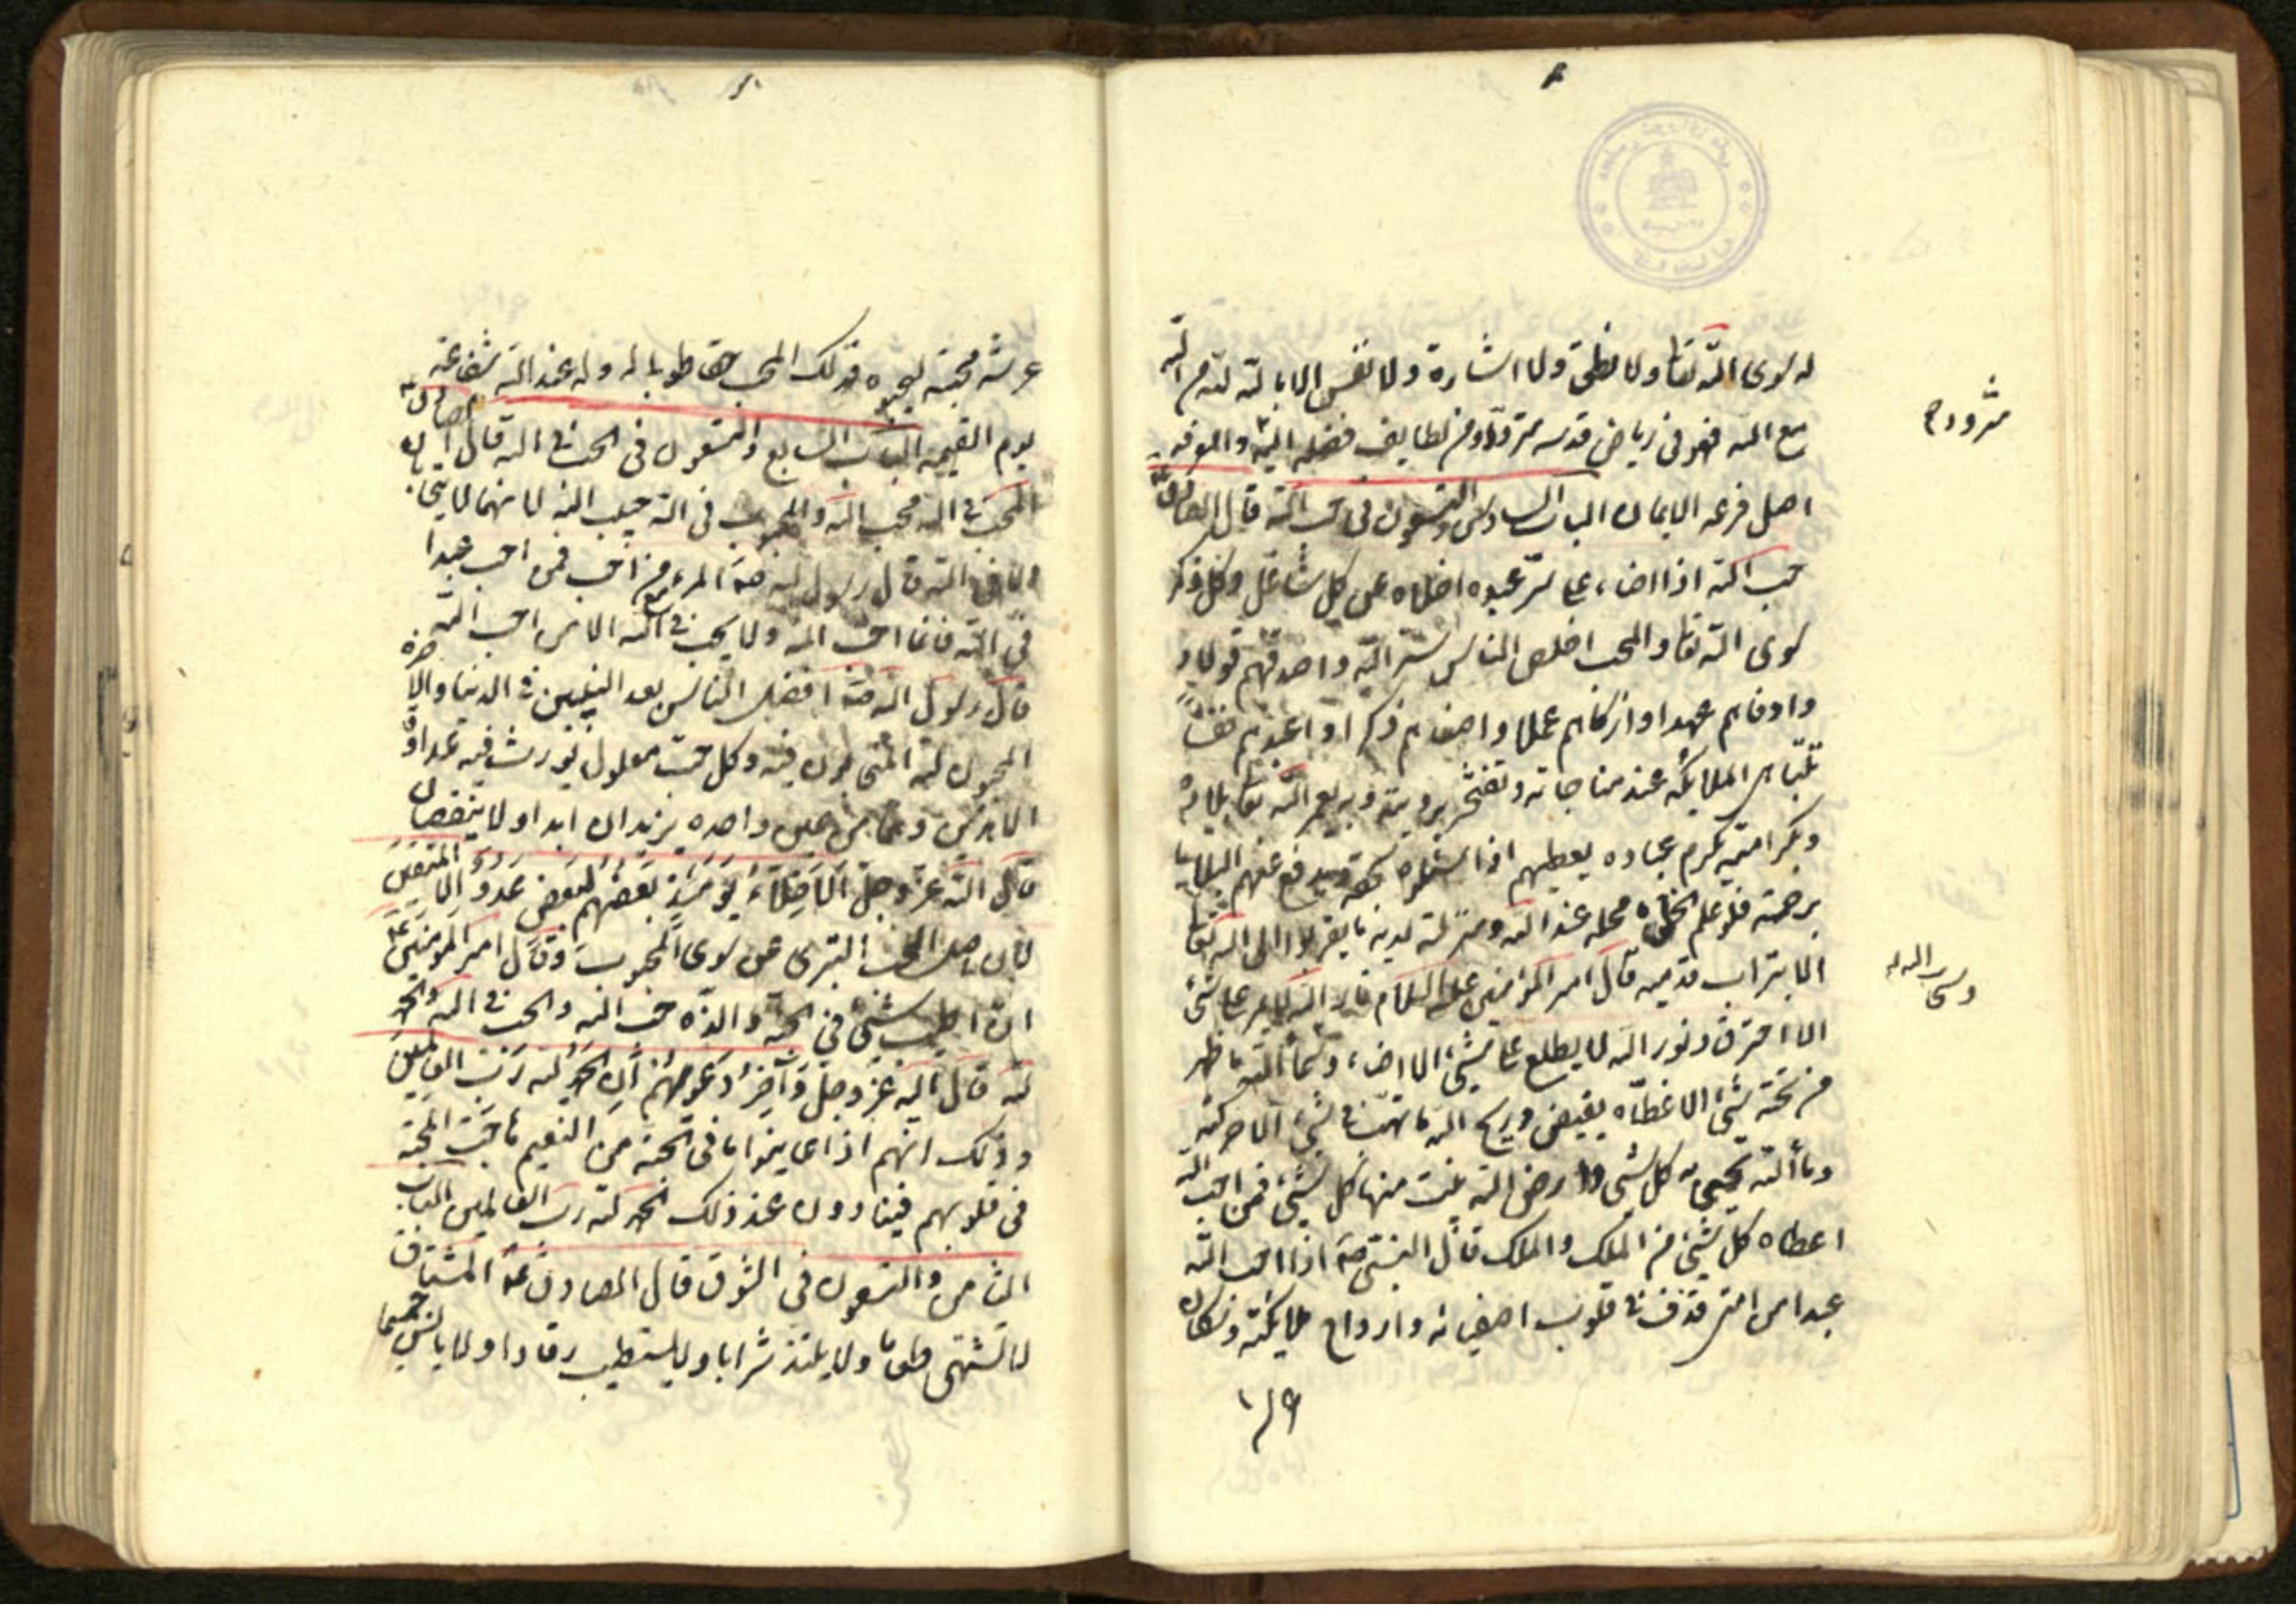 له سوى الله تعا ولا نطق ولا اشارة ولا نفس الا بالله لله من الله
مع الله فهو فى رياض قدسه متردد ومن لطايف فضله اليه متزود والمعرفة
متزود م
اصل فرعه الايمان الباب السادس والتسعون فى حب الله قال الصادق ع
حب الله اذا اضاء على سر عبده اخلاه عن كل شاغل وكل ذكر
سوى الله تعا والمحب اخلص الناس سر الله واصدقهم قولا و
واوفاهم عهدا وازكاهم عملا واصفاهم ذكرا واعبدهم نفسا
تتباهى الملايكة عند مناجاته وتفتخر برويته وبه يعمر الله تعا بلاده
وبكرامته يكرم عباده يعطيهم اذا سئلوه بحقه ويدفع عنهم البلايا
برحمته فلو علم الخلق ما محله عند الله ومنزلته لديه ما يقربوا الى الله تعا
الا بتراب قدميه قال امير المؤمنين عليه السلام نار الله لا يمر على شئ
الا احترق ونور الله لا يطلع على شئ الا اضاء وسماء الله ما ظهر
وسحاب الله
من تحته شئ الا غطاه بقيض وريح الله ما تهب فى شئ الا حركته
وماء الله يحيى به كل شئ وارض الله ينبت منها كل شئ فمن احب الله
اعطاه كل شئ من الملك والملك قال النبى ص اذا احب الله
عبدا من امتى قذف فى قلوب اصفيائه وارواح ملايكته وسكان
عرشه محبته ليحبوه فذلك المحب حقا طوبا له وله عند الله شفاعة
يوم القيمة الباب السابع والتسعون فى الحب فى الله قال الصادق ع
المحب فى الله محب الله والمحبوب فى الله حبيب الله لانهما لا يتحابان
الا فى الله قال رسول الله ص المرء مع من احب فمن احب عبدا
فى الله فانما احب الله ولا يحب فى الله الا من احب الله
قال رسول الله ص افضل الناس بعد النبيين فى الدنيا والاخرة
المحبون لله المتحابون فيه وكل حب معلول يورث فيه عداوة
الا هذين وهما من عين واحدة يزيدان ابدا ولا ينقصان
قال الله عز وجل الاخلاء يومئذ بعضهم لبعض عدو الا المتقين
لان اصل الحب التبرى عن سوى المحبوب وقال امير المؤمنين ع
ان اطيب شئ فى الجنة والذه حب الله والحب فى الله والحمد
لله قال الله عز وجل وآخر دعوىهم ان الحمد لله رب العالمين
وذلك انهم اذا عاينوا ما فى الجنة من النعيم هاجت المحبة
فى قلوبهم فينادون عند ذلك الحمد لله رب العالمين الباب
الثامن والتسعون فى الشوق قال الصادق ع المشتاق
لا تشتهى طعاما ولا يلتذ شرابا ولا يستطيب رقادا ولا يانس حميما